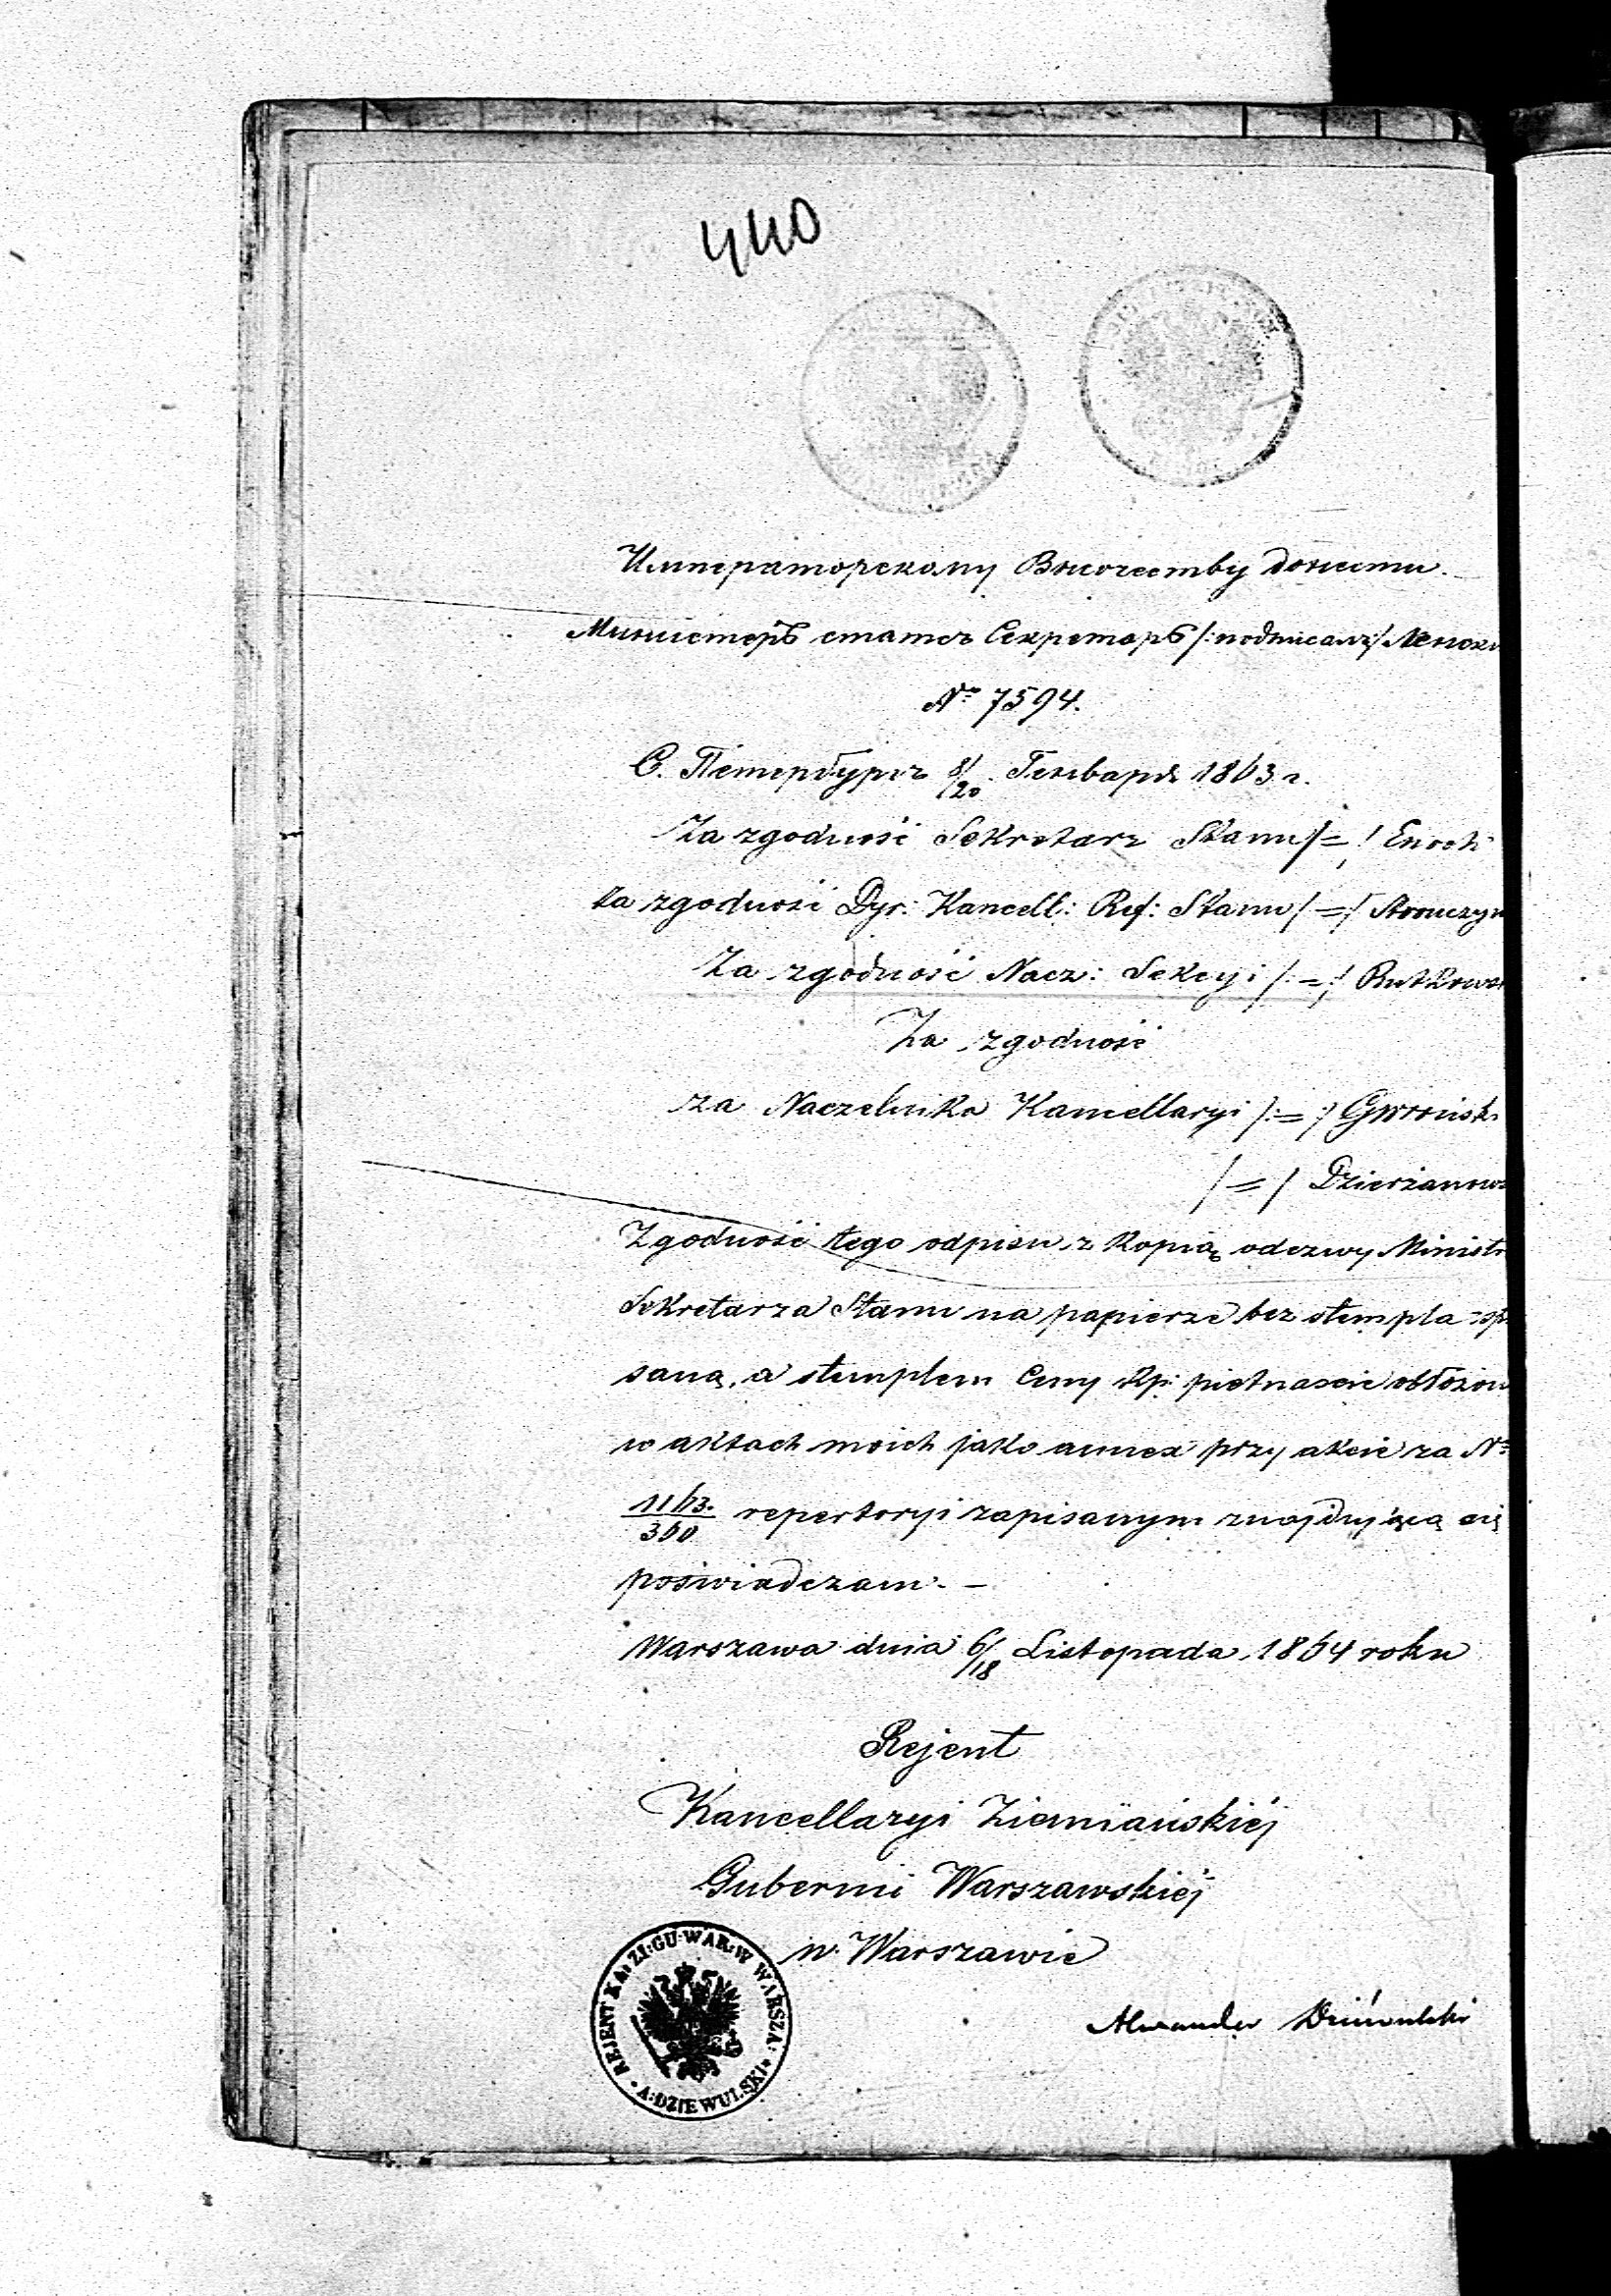 440
Императорскому Высочеству донести.
Министръ статсъ Секретарь /:подписалъ:/
№ 7594.
С. Петербургъ 8/20 Генваря 1863 г.
Za zgodność Sekretarz Stanu /=/ Enoch
za zgodność Dyr: Kancell: Ref: Stanu /=/ Stronczyń
Za zgodność Nacz: Sekcyi /:=:/ Rutkows
Za zgodność
za Naczelnika Kancellaryi /:=:/
/=/ Dzierżanows
Zgodność tego odpisu z Kopią odezwy Ministr
Sekretarza Stanu na papierze bez stempla sp
saną, a stemplem Ceny Kp: piętnaście obłożon
w aktach moich jako annex przy akcie za N°
1163./360 repertoryi zapisanym znajdującą się
poświadczam. —
Warszawa dnia 6/18 Listopada 1864 roku
Rejent
Kancellaryi Ziemiańskiéj
Gubernii Warszawskiéj
w Warszawie
Alexander Dziewulski
REJENT KA: ZI: GU: WAR: W WARSZA: A: DZIEWULSKI